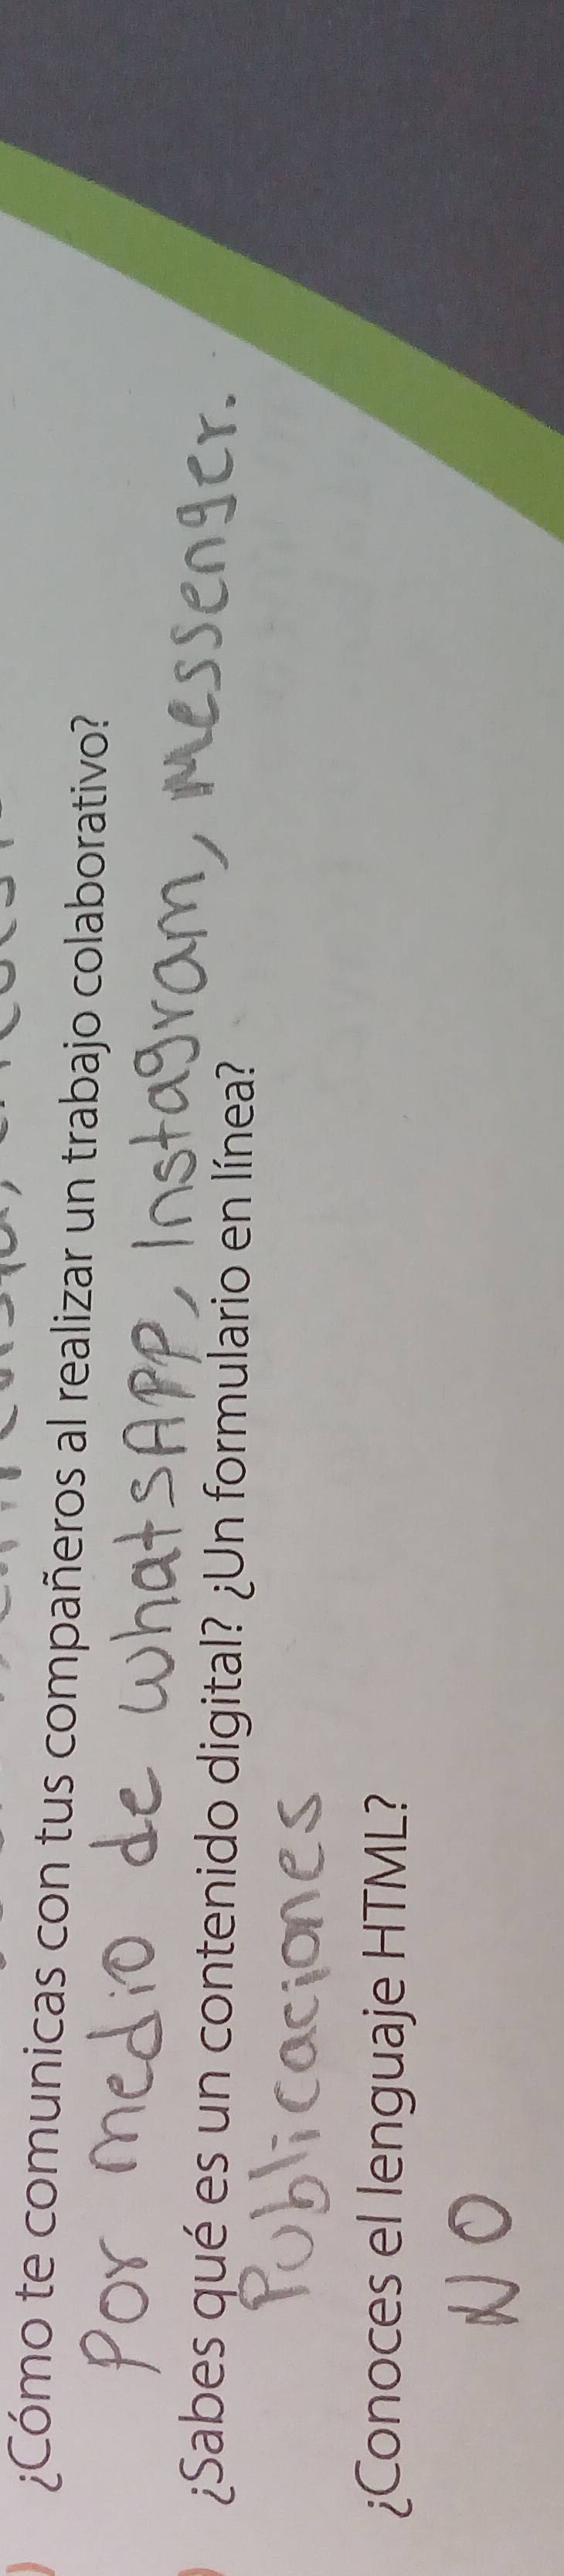 ¿Cómo te comunicas con tus compañeros al realizar un trabajo colaborativo?
Por medio de whatsAPP, Instagram, Messenger.
¿Sabes qué es un contenido digital? ¿Un formulario en línea?
Publicaciones
¿Conoces el lenguaje HTML?
NO